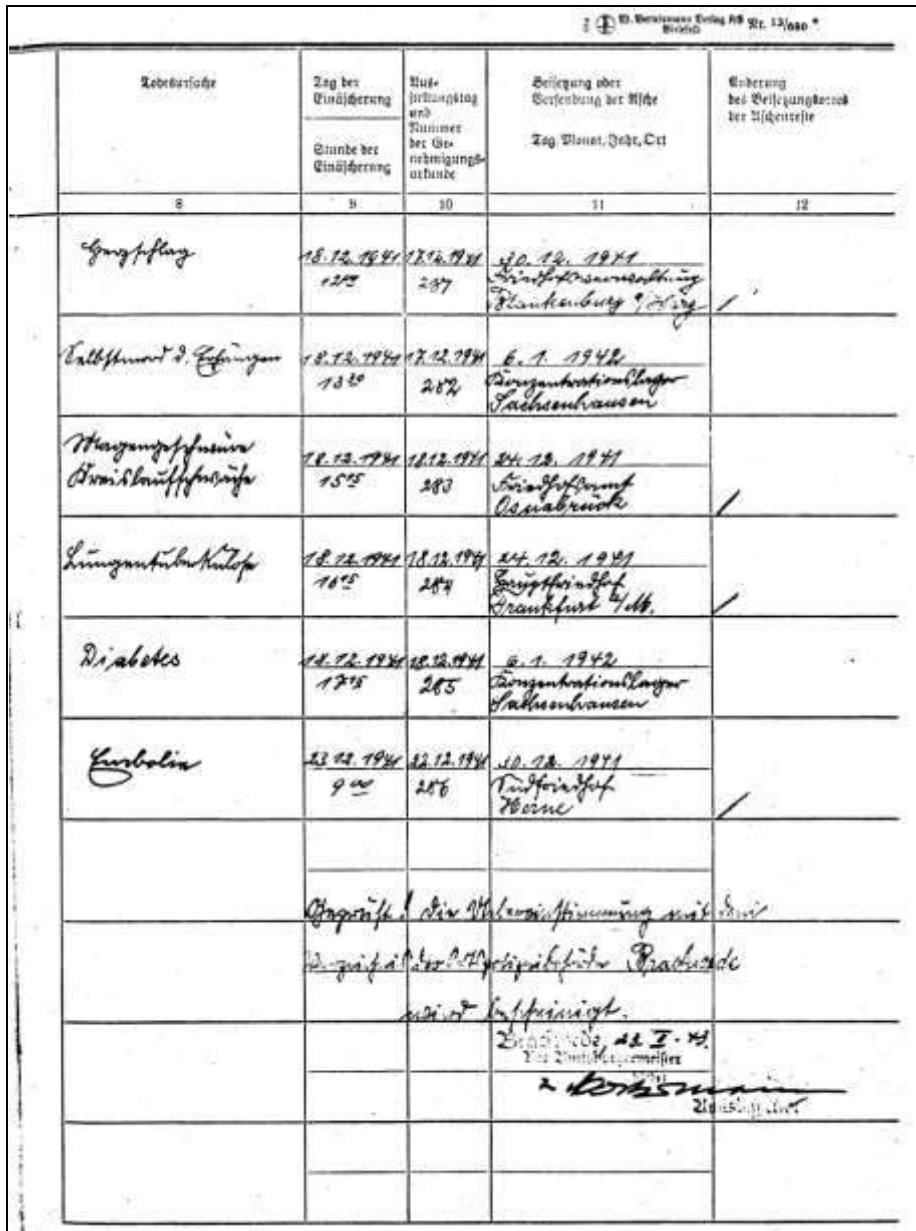 W. Bertelsmann Verlag KG Nr. 13/680 *
Bielefeld
Todesursache
Tag der
Einäscherung
Stunde der
Einäscherung
Aus-
stellungstag
und
Nummer
der Ge-
nehmigungs-
urkunde
Beisetzung oder
Versendung der Asche
Tag, Monat, Jahr, Ort
Änderung
des Beisetzungsortes
der Aschenreste
8 9 10 11 12
Herzschlag 18.12.1941 17.12.1941 30.12.1941
Friedhofsverwaltung
Blankenburg a/Harz
Selbstmord d. Erhängen 18.12.1941 17.12.1941 6. 1. 1942
13 30 282 Konzentrationslager
Sachsenhausen
Magengeschwüre
Kreislaufschwäche 18.12.1941 18.12.1941 24.12.1941
15 15 283 Friedhofsamt
Osnabrück
Lungentuberkulose 18.12.1941 18.12.1941 24.12.1941
16 15 284 Hauptfriedhof
Frankfurt a/M.
Diabetes 18.12.1941 18.12.1941 6. 1. 1942
17 15 285 Konzentrationslager
Sachsenhausen
Embolie 23.12.1941 22.12.1941 30.12.1941
9 00 286 Südfriedhof
Herne
Geprüft! Die Übereinstimmung mit dem
Verzeichnis der Ortspolizeibehörde Brackwede
wird bescheinigt.
Brackwede,
Der Amtsbürgermeister